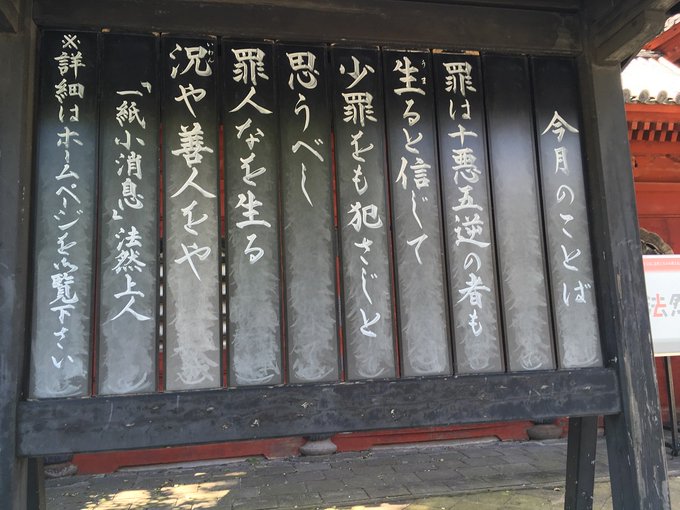 今月のことば
罪は十悪五逆の者も
生ると信じて
少罪をも犯さじと
思うべし
罪人なを生る
況や善人をや
「一紙小消息」法然上人
※詳細はホームページをご覧下さい
うま
いわん
法然